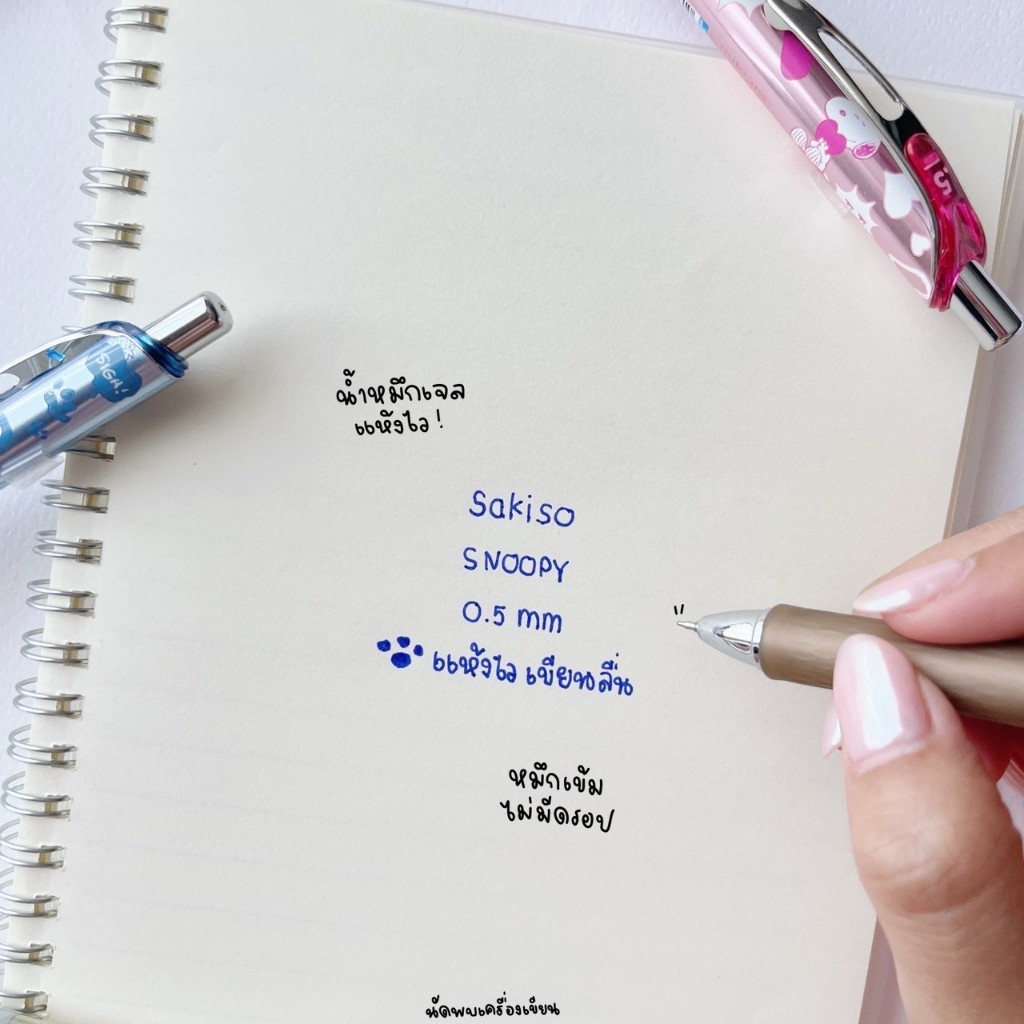 น้ำหมึกเจล
แห้งไว!
Sakiso
SNOOPY
0.5 mm
แห้งไว เขียนลื่น
หมึกเข้ม
ไม่มีดรอป
นัดพบเครื่องเขียน
SIGH!